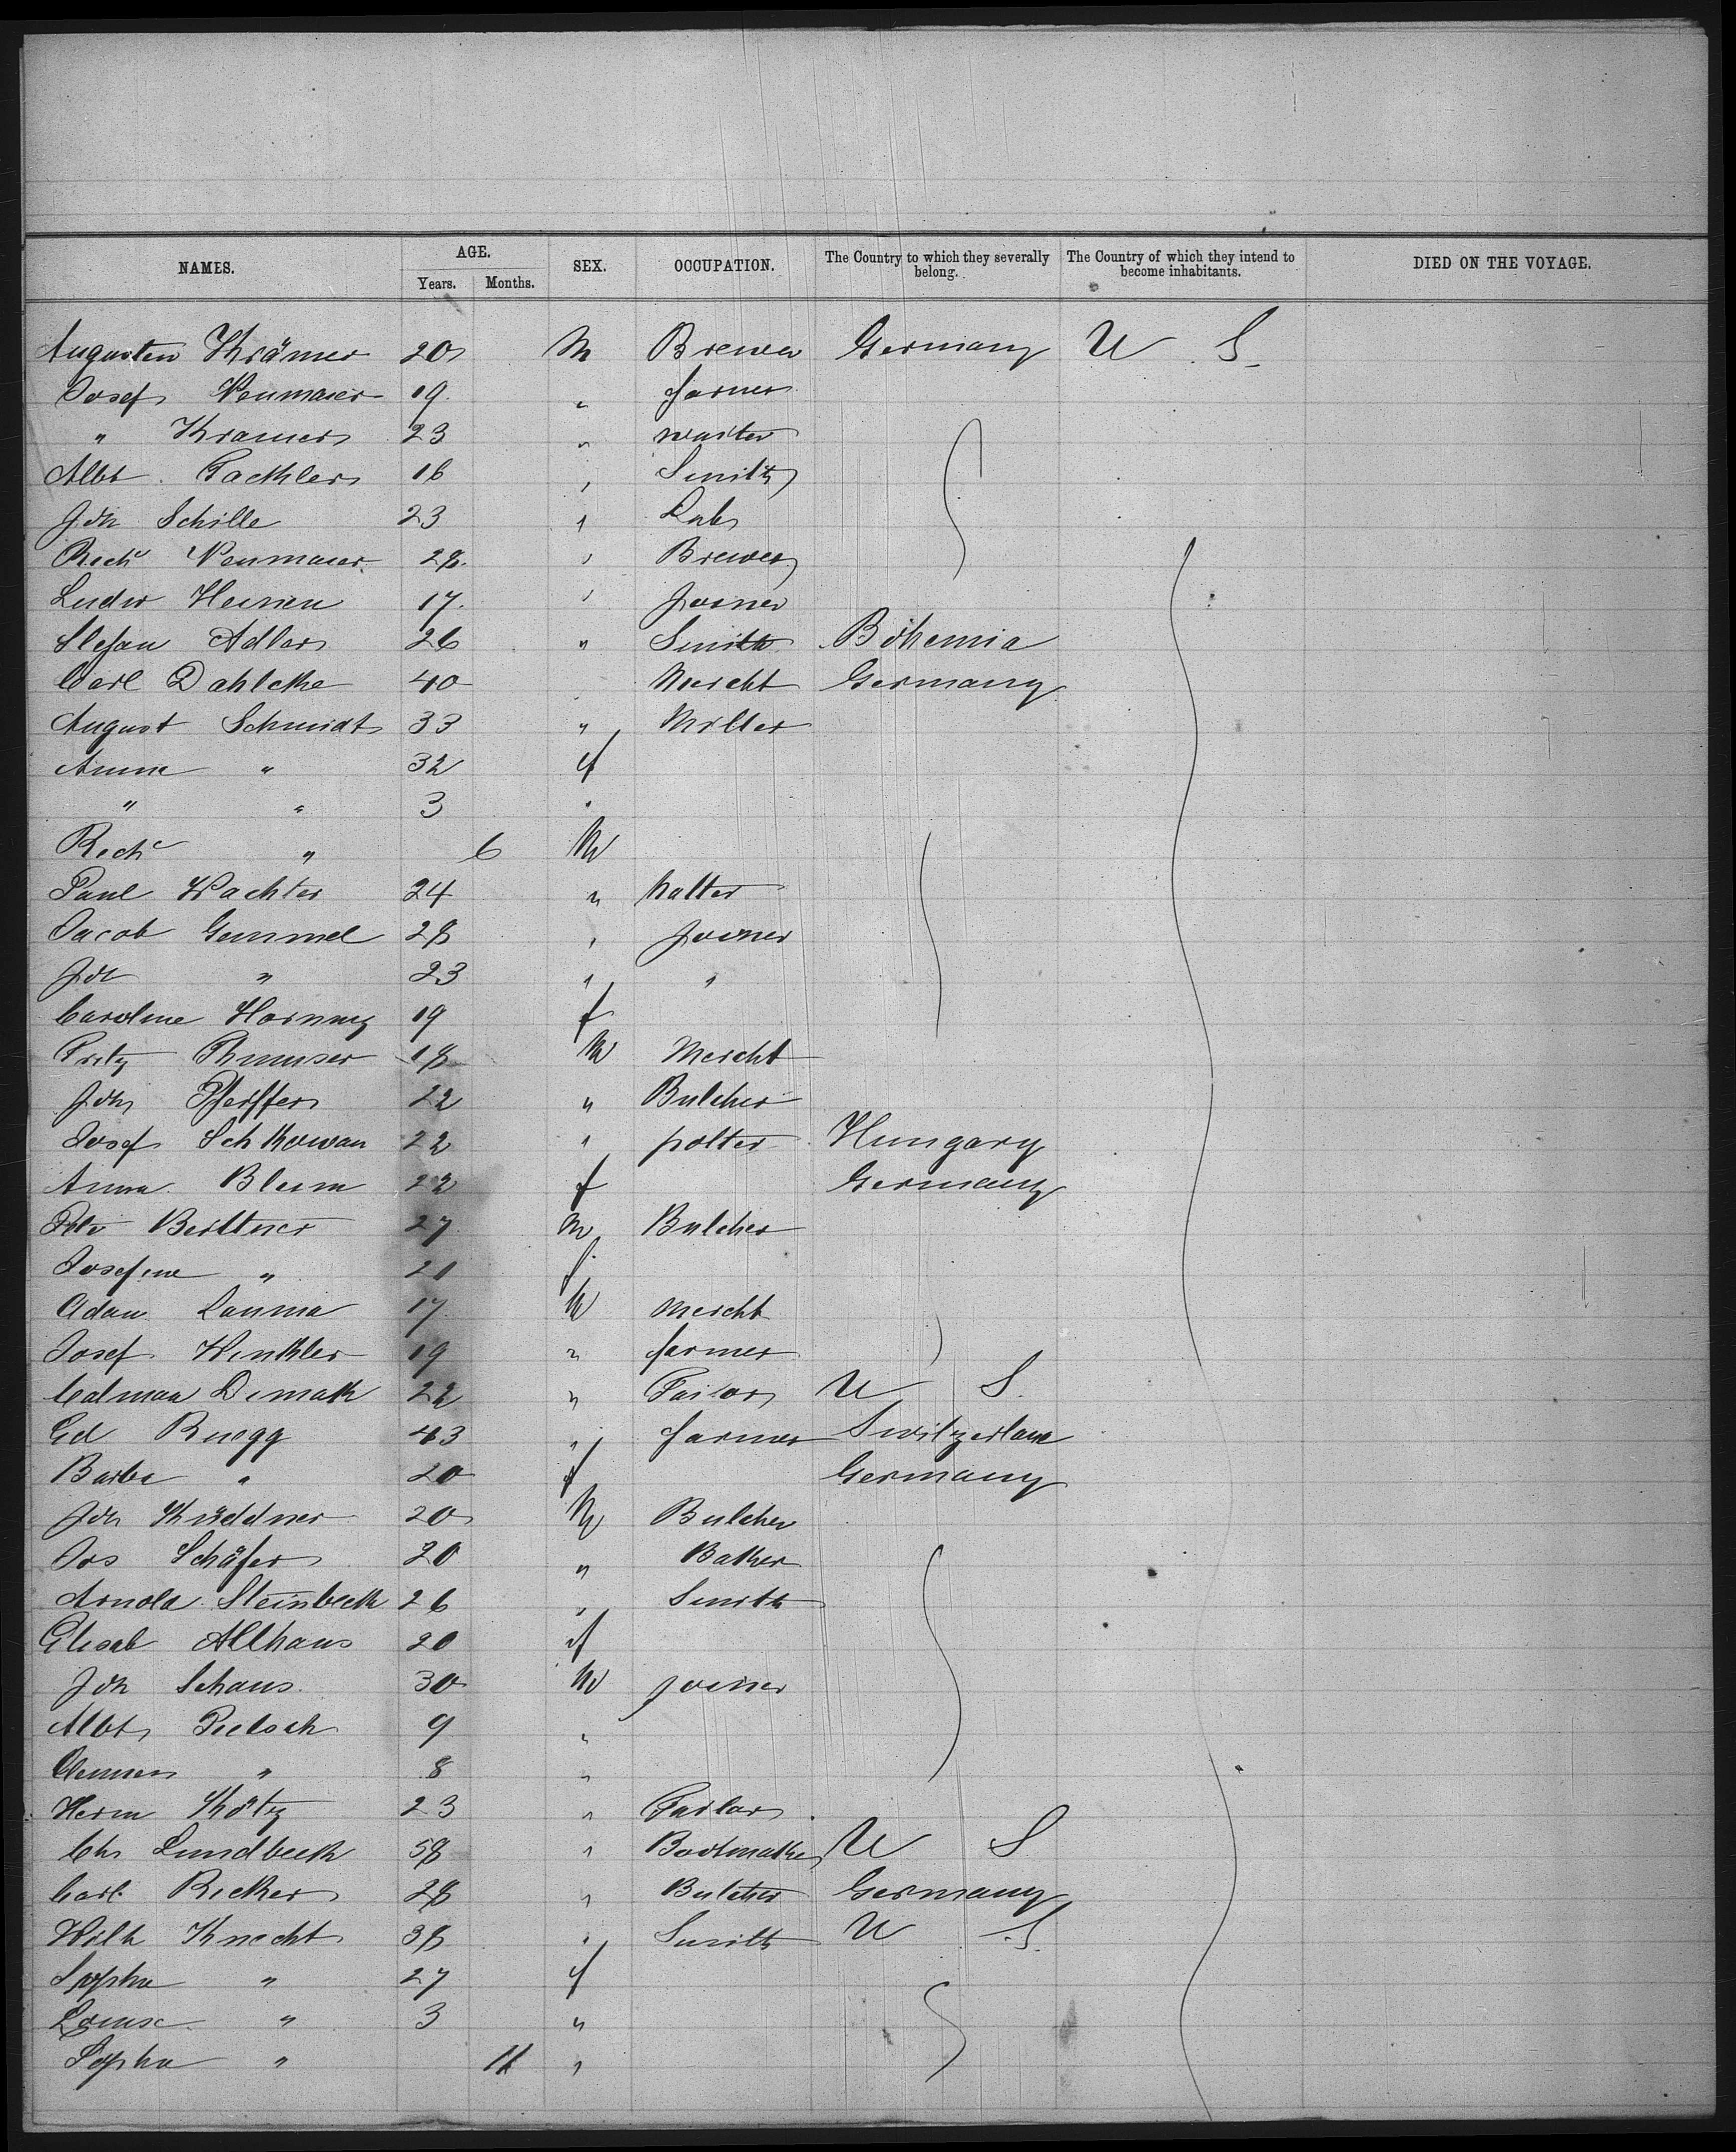 NAMES. AGE. SEX. OCCUPATION. The Country to which they severally belong. The Country of which they intend to become inhabitants. DIED ON THE VOYAGE.
Years. Months.
Augusten Krämer 20 M Brewer Germany U S
Josef Neumaier 19 " farmer
" Kramer 23 " waiter
Albt Tackler 16 " Smith
Joh Schille 23 " Lab
Rich Neumaier 28 " Brewer
Ludw 17 " Joiner
Stefan Adler 26 " Smith Bohemia
Carl Dahlcke 40 Mercht Germany
August Schmidt 33 " Miller
Anna " 32 f
" " 3 "
Rich " 6 M
Paul Wachter 24 " hatter
Jacob Gemmel 28 " Joiner
Joh " 23 " "
Caroline Hornung 19 f
Fritz 18 M Mercht
Joh Pfeiffer 22 " Butcher
Josef Schkowan 22 " potter Hungary
Anna Blum 22 f Germany
Petr Bittner 27 M Butcher
Josefine " 21 f
Adam Lamma 17 M Mercht
Josef Winkler 19 " farmer
Calman 22 " Tailor U S
Ed Ruegg 43 " farmer Switzerland
Barba " 20 f Germany
Joh Krüddner 20 M Butcher
Jos Schäfer 20 " Baker
Arnold Steinbeck 26 " Smith
Elisab Althaus 20 f
Joh Schaus 30 M Joiner
Albt Pietsch 9 "
Clemens " 8 "
Herm Kötz 23 " Tailor
Chr Lundbeck 58 " Bootmaker U S
Carl Ricker 28 " Butcher Germany
Wilh Knecht 38 " Smith U S
Sophie " 27 f
Louise " 3 "
Sophie " 11 "